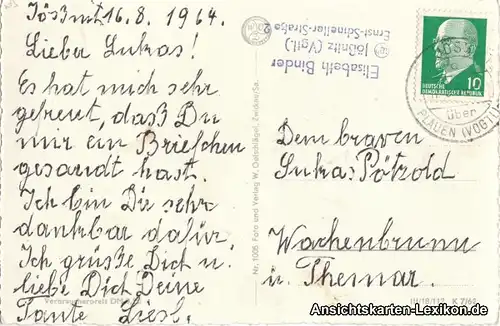 Jößnitz 16.8.1964.
Lieber Lukas!
Es hat mich sehr
gefreut, daß Du
mir ein Briefchen
gesandt hast.
Ich bin Dir sehr
dankbar dafür.
Ich grüße Dich u.
liebe Dich Deine
Tante Liesl.
Verbraucherpreis DM
Nr. 1005 Foto und Verlag W. Oelschlägel, Zwickau/Sa.
Elisabeth Binder
Jößnitz (Vogtl.)
Ernst-Schneller-Straße 2
DEUTSCHE
DEMOKRATISCHE REPUBLIK
10
über
PLAUEN (VOGTL)
Dem braven
Lukas Pätzold
Wachenbrunn
ü. Themar.
III/18/117 K 7/62
Ansichtskarten-Lexikon.de